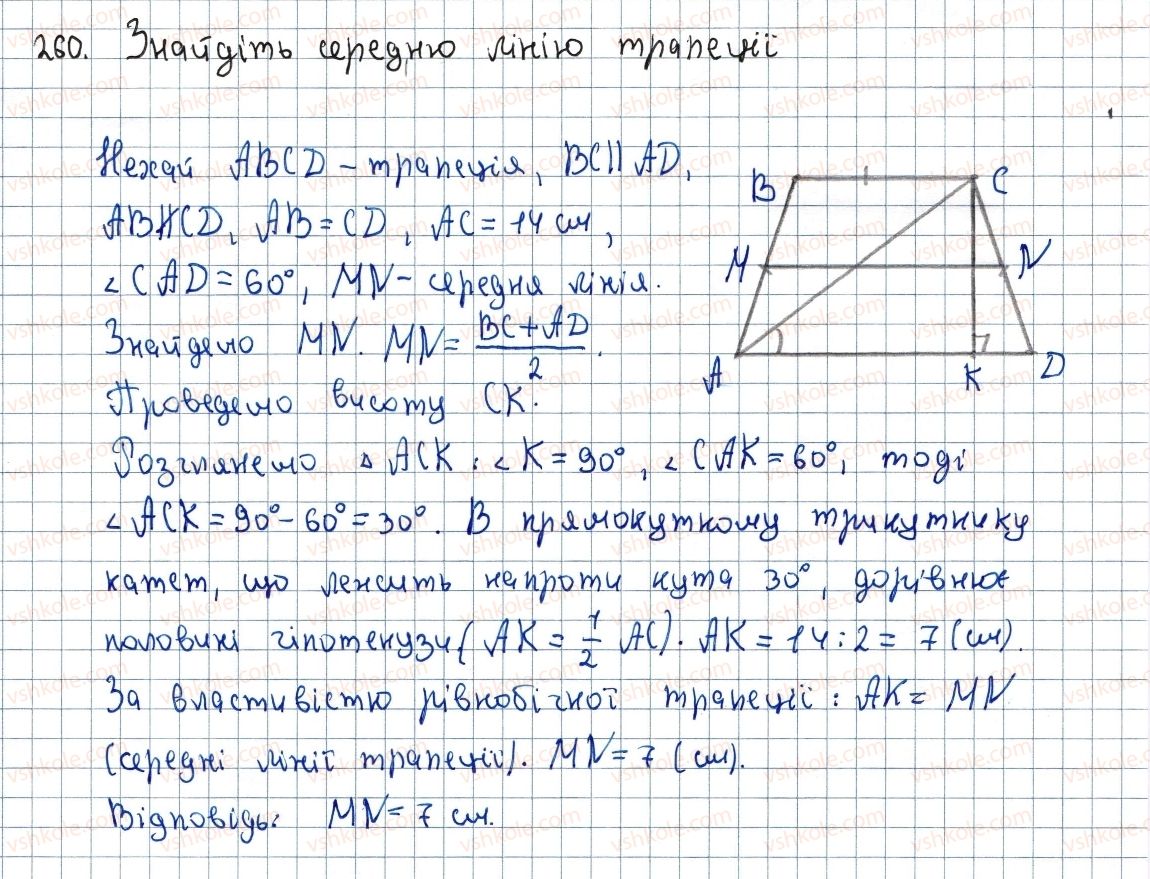 260. Знайдіть середню лінію трапеції
Нехай ABCD – трапеція, BC || AD,
AB∦CD, AB = CD, AC = 14 см,
∠CAD = 60°, MN – середня лінія.
Знайдемо MN. MN = (BC + AD)/2.
Проведемо висоту CK.
Розглянемо ∆ ACK: ∠K = 90°, ∠CAK = 60°, тоді
∠ACK = 90° – 60° = 30°. В прямокутному трикутнику
катет, що лежить напроти кута 30°, дорівнює
половині гіпотенузи (AK = 1/2 AC). AK = 14 : 2 = 7 (см).
За властивістю рівнобічної трапеції: AK = MN
(середні лінії трапеції). MN = 7 (см).
Відповідь: MN = 7 см.
B
C
M
N
A
K
D
vshkole.com